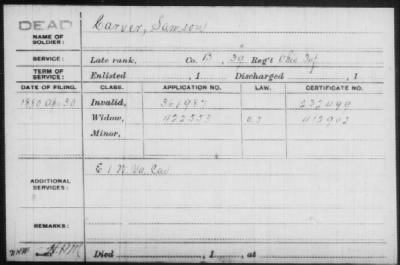 DEAD
NAME OF SOLDIER:
Carver, Samson
SERVICE:
Late rank, Co. B, 39 Reg't Ohio Inf
TERM OF SERVICE:
Enlisted , 1 Discharged , 1
DATE OF FILING. CLASS. APPLICATION NO. LAW. CERTIFICATE NO.
1880 Apr. 30 Invalid, 361987 232499
Widow, 922555 412902
Minor,
ADDITIONAL SERVICES:
E 1 W. Va. Cav
REMARKS:
Died , 1 , at